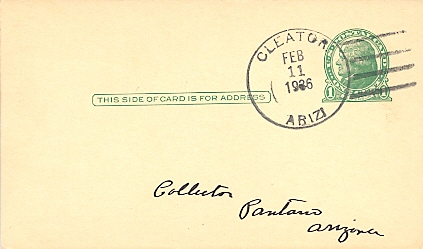 CLEATOR
FEB
11
1936
ARIZ
THIS SIDE OF CARD IS FOR ADDRESS
1
Collector
Pantano
Arizona